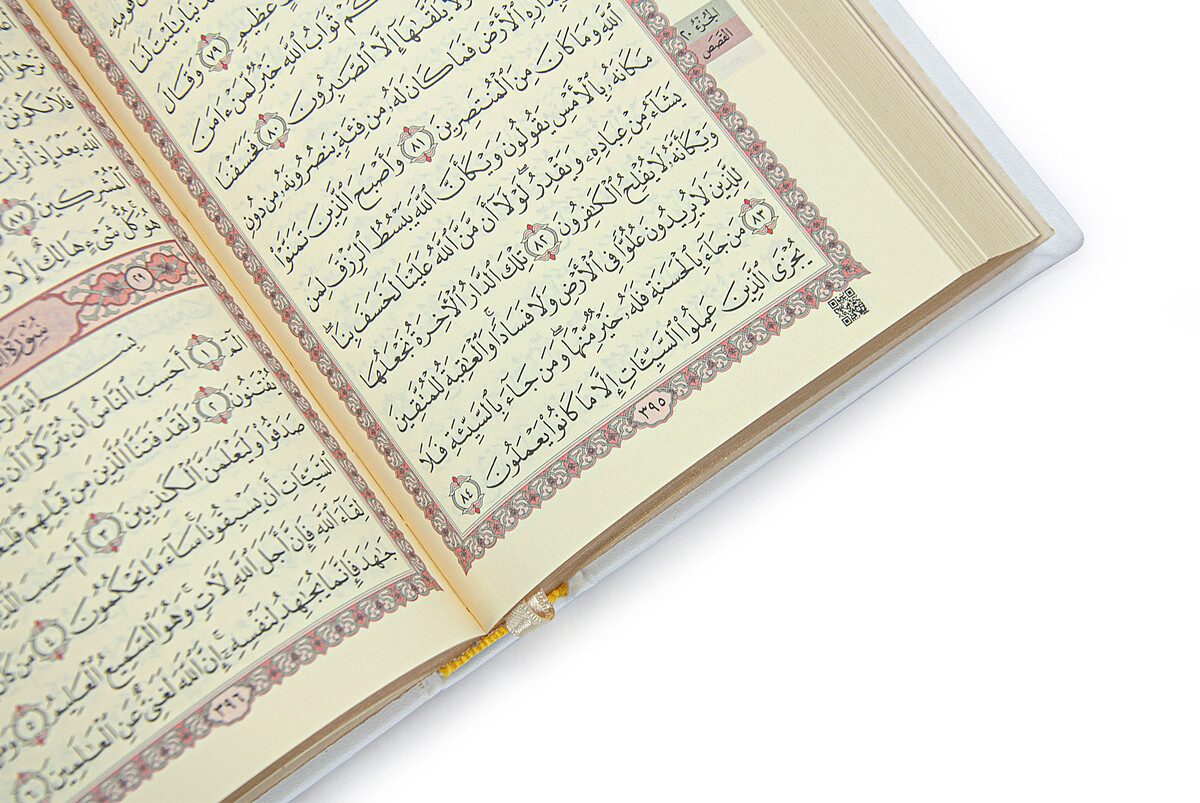 يَٰلَيْتَ لَنَا
عَظِيمٍ ٧٩ وَقَالَ
ثَوَابُ ٱللَّهِ خَيْرٌ لِّمَنْ ءَامَنَ
وَلَا يُلَقَّىٰهَآ إِلَّا ٱلصَّٰبِرُونَ ٨٠ فَخَسَفْنَا
ٱلْأَرْضَ فَمَا كَانَ لَهُۥ مِن فِئَةٍ يَنصُرُونَهُۥ مِن دُونِ
ٱللَّهِ وَمَا كَانَ مِنَ ٱلْمُنتَصِرِينَ ٨١ وَأَصْبَحَ ٱلَّذِينَ تَمَنَّوْا۟
مَكَانَهُۥ بِٱلْأَمْسِ يَقُولُونَ وَيْكَأَنَّ ٱللَّهَ يَبْسُطُ ٱلرِّزْقَ لِمَن
يَشَآءُ مِنْ عِبَادِهِۦ وَيَقْدِرُ ۖ لَوْلَآ أَن مَّنَّ ٱللَّهُ عَلَيْنَا لَخَسَفَ بِنَا ۖ
وَيْكَأَنَّهُۥ لَا يُفْلِحُ ٱلْكَٰفِرُونَ ٨٢ تِلْكَ ٱلدَّارُ ٱلْءَاخِرَةُ نَجْعَلُهَا
لِلَّذِينَ لَا يُرِيدُونَ عُلُوًّا فِى ٱلْأَرْضِ وَلَا فَسَادًا ۚ وَٱلْعَٰقِبَةُ لِلْمُتَّقِينَ
٨٣ مَن جَآءَ بِٱلْحَسَنَةِ فَلَهُۥ خَيْرٌ مِّنْهَا ۖ وَمَن جَآءَ بِٱلسَّيِّئَةِ فَلَا
يُجْزَى ٱلَّذِينَ عَمِلُوا۟ ٱلسَّيِّـَٔاتِ إِلَّا مَا كَانُوا۟ يَعْمَلُونَ ٨٤
٣٩٥
الجزء ٢٠
القصص
فَلَا تَكُونَنَّ
ٱللَّهِ بَعْدَ إِذْ أُنزِلَتْ
ٱلْمُشْرِكِينَ ٨٧
هُوَ ۚ كُلُّ شَىْءٍ هَالِكٌ إِلَّا
٢٩
سُورَةُ
بِسْمِ ٱللَّهِ
الٓمٓ ١ أَحَسِبَ ٱلنَّاسُ أَن يُتْرَكُوٓا۟ أَن
يُفْتَنُونَ ٢ وَلَقَدْ فَتَنَّا ٱلَّذِينَ مِن قَبْلِهِمْ ۖ
صَدَقُوا۟ وَلَيَعْلَمَنَّ ٱلْكَٰذِبِينَ ٣ أَمْ حَسِبَ
ٱلسَّيِّـَٔاتِ أَن يَسْبِقُونَا ۚ سَآءَ مَا يَحْكُمُونَ ٤ مَن كَانَ
لِقَآءَ ٱللَّهِ فَإِنَّ أَجَلَ ٱللَّهِ لَءَاتٍ ۚ وَهُوَ ٱلسَّمِيعُ ٱلْعَلِيمُ ٥
جَٰهَدَ فَإِنَّمَا يُجَٰهِدُ لِنَفْسِهِۦٓ ۚ إِنَّ ٱللَّهَ لَغَنِىٌّ عَنِ ٱلْعَٰلَمِينَ ٦
٣٩٦